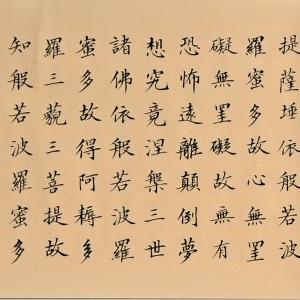 提薩埵依般若波
羅蜜多故心無罣
礙無罣礙故無有
恐怖遠離顛倒夢
想究竟涅槃三世
諸佛依般若波羅
蜜多故得阿耨多
羅三藐三菩提故
知般若波羅蜜多